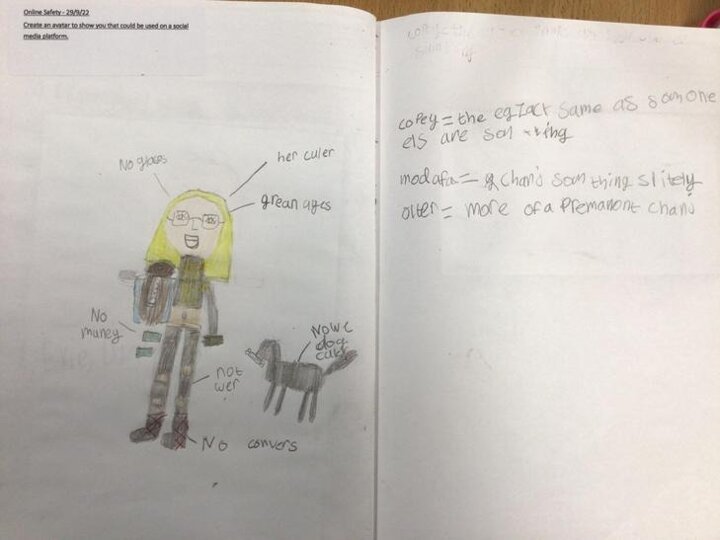 Online Safety - 29/9/22
Create an avatar to show you that could be used on a social
media platform.
No glases
her culer
grean ayes
No
muney
not
wer
No convers
Nowc
dog
cuts
copey = the egzact same as som one
els are som thing
modafa = chang som thing slitely
olter = more of a premanont chang